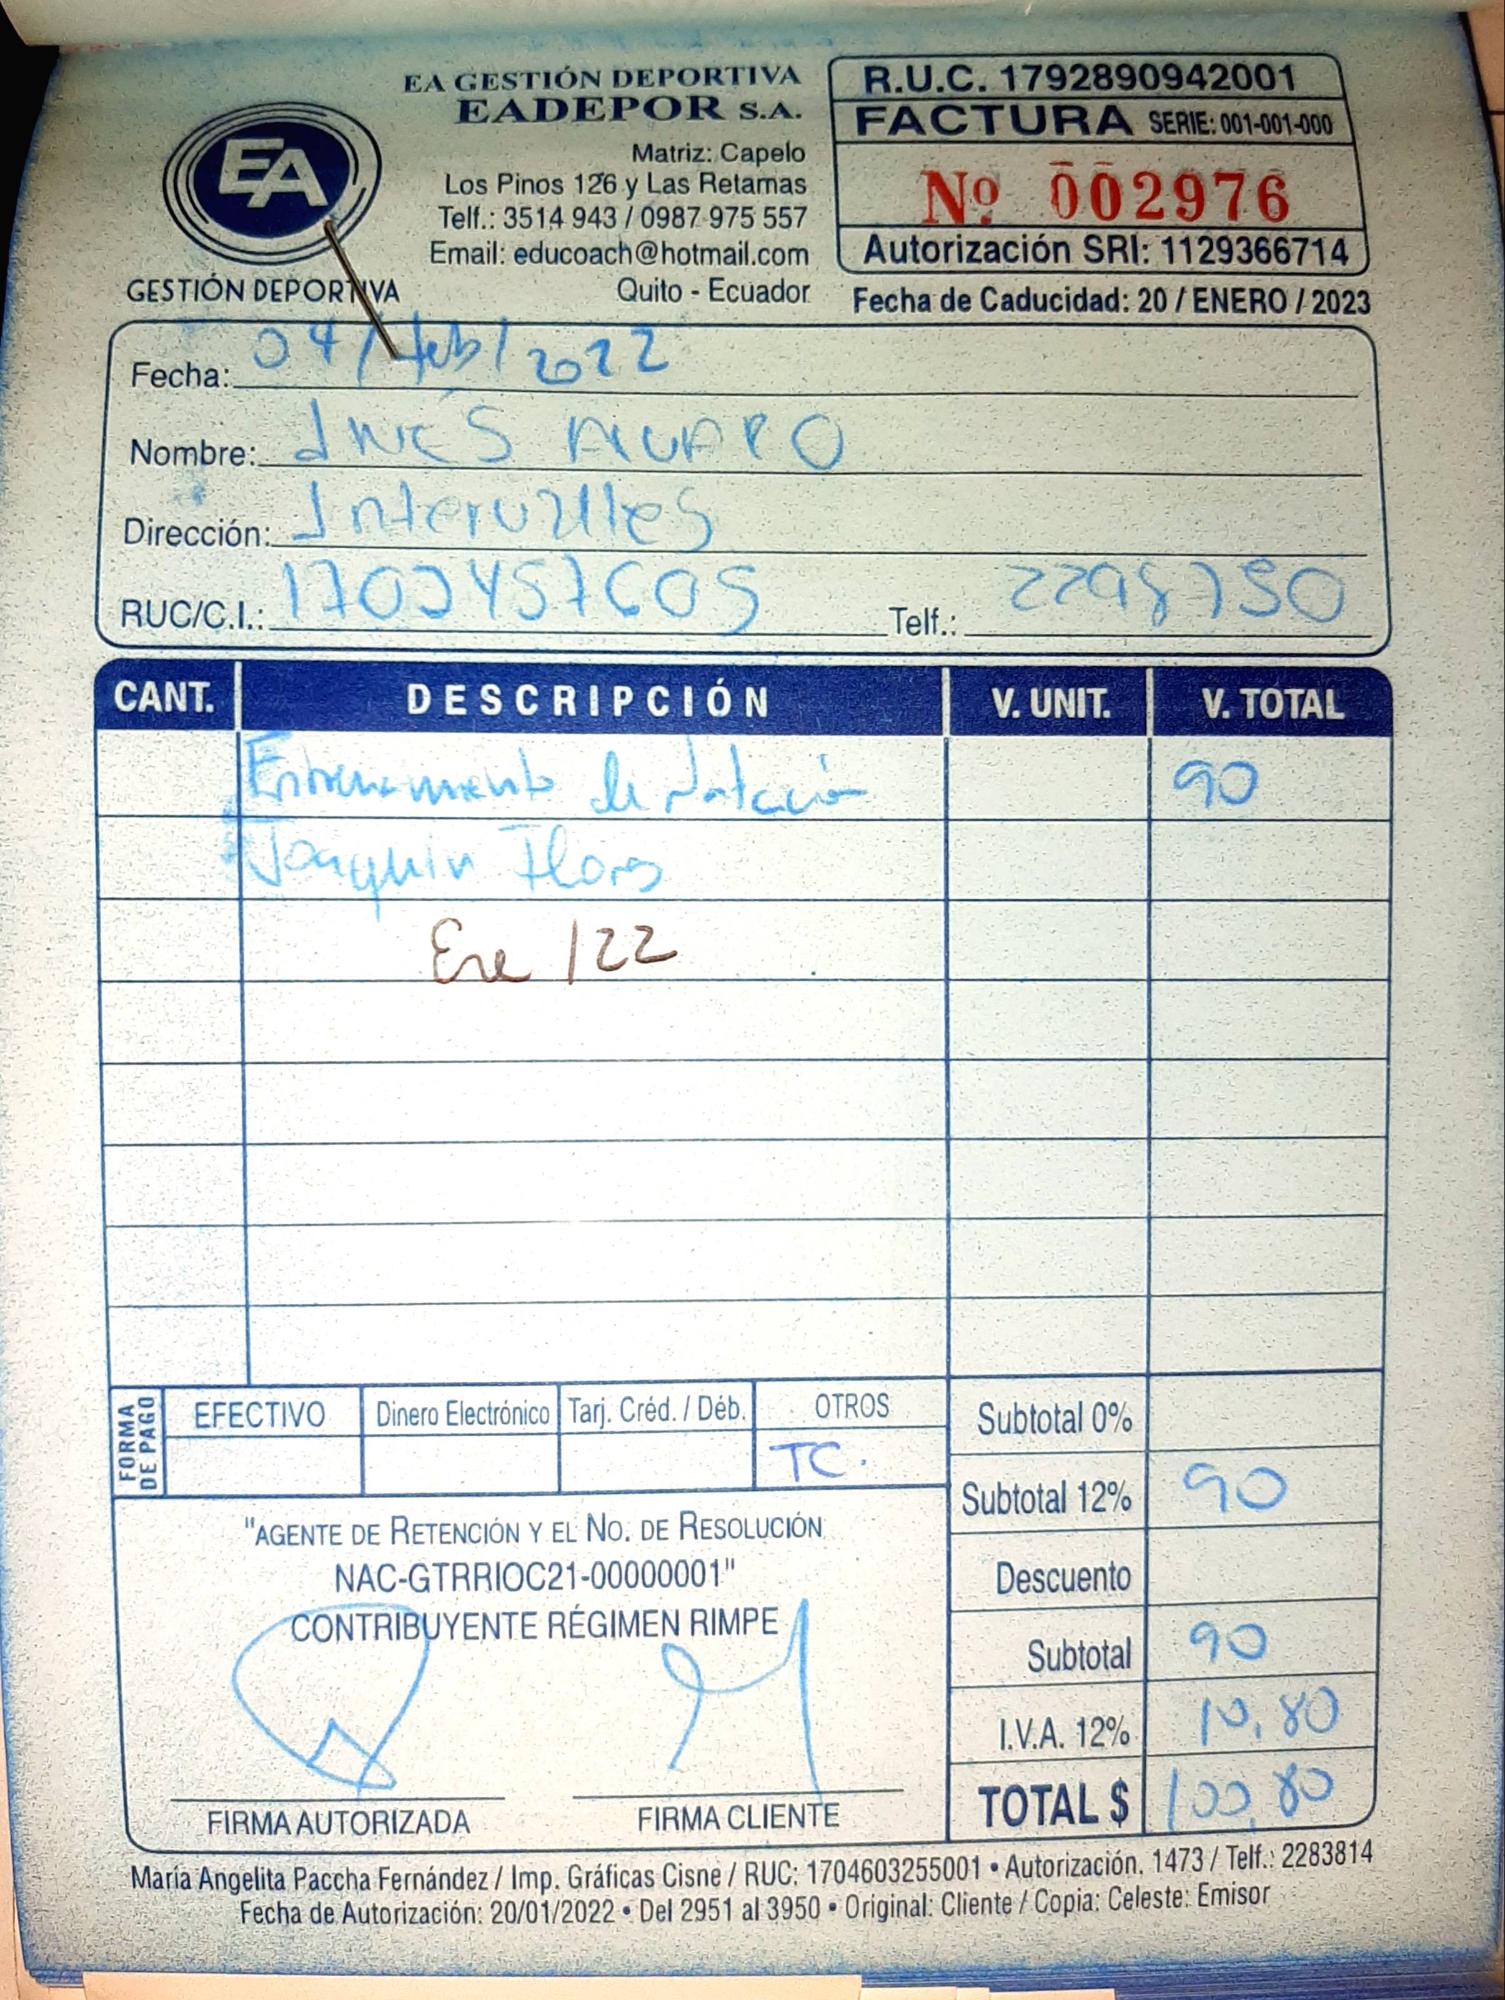 EA GESTIÓN DEPORTIVA
EADEPOR S.A.
Matriz: Capelo
Los Pinos 126 y Las Retamas
Telf.: 3514 943 / 0987 975 557
Email: educoach@hotmail.com
Quito - Ecuador
EA
GESTIÓN DEPORTIVA
R.U.C. 1792890942001
FACTURA SERIE: 001-001-000
Nº 002976
Autorización SRI: 1129366714
Fecha de Caducidad: 20 / ENERO / 2023
Fecha: 04/feb/2022
Nombre: INÉS
Dirección: Intervalles
RUC/C.I.: Telf.: 2298750
CANT. DESCRIPCIÓN V. UNIT. V. TOTAL
Entrenamiento de Natación 90
Joaquin Flores
Ene /22
FORMA DE PAGO
EFECTIVO Dinero Electrónico Tarj. Créd. / Déb. OTROS
TC.
Subtotal 0%
Subtotal 12% 90
Descuento
Subtotal 90
I.V.A. 12% 10,80
TOTAL $ 100,80
"AGENTE DE RETENCIÓN Y EL NO. DE RESOLUCIÓN
NAC-GTRRIOC21-00000001"
CONTRIBUYENTE RÉGIMEN RIMPE
FIRMA AUTORIZADA FIRMA CLIENTE
María Angelita Paccha Fernández / Imp. Gráficas Cisne / RUC: 1704603255001 • Autorización. 1473 / Telf.: 2283814
Fecha de Autorización: 20/01/2022 • Del 2951 al 3950 • Original: Cliente / Copia: Celeste: Emisor